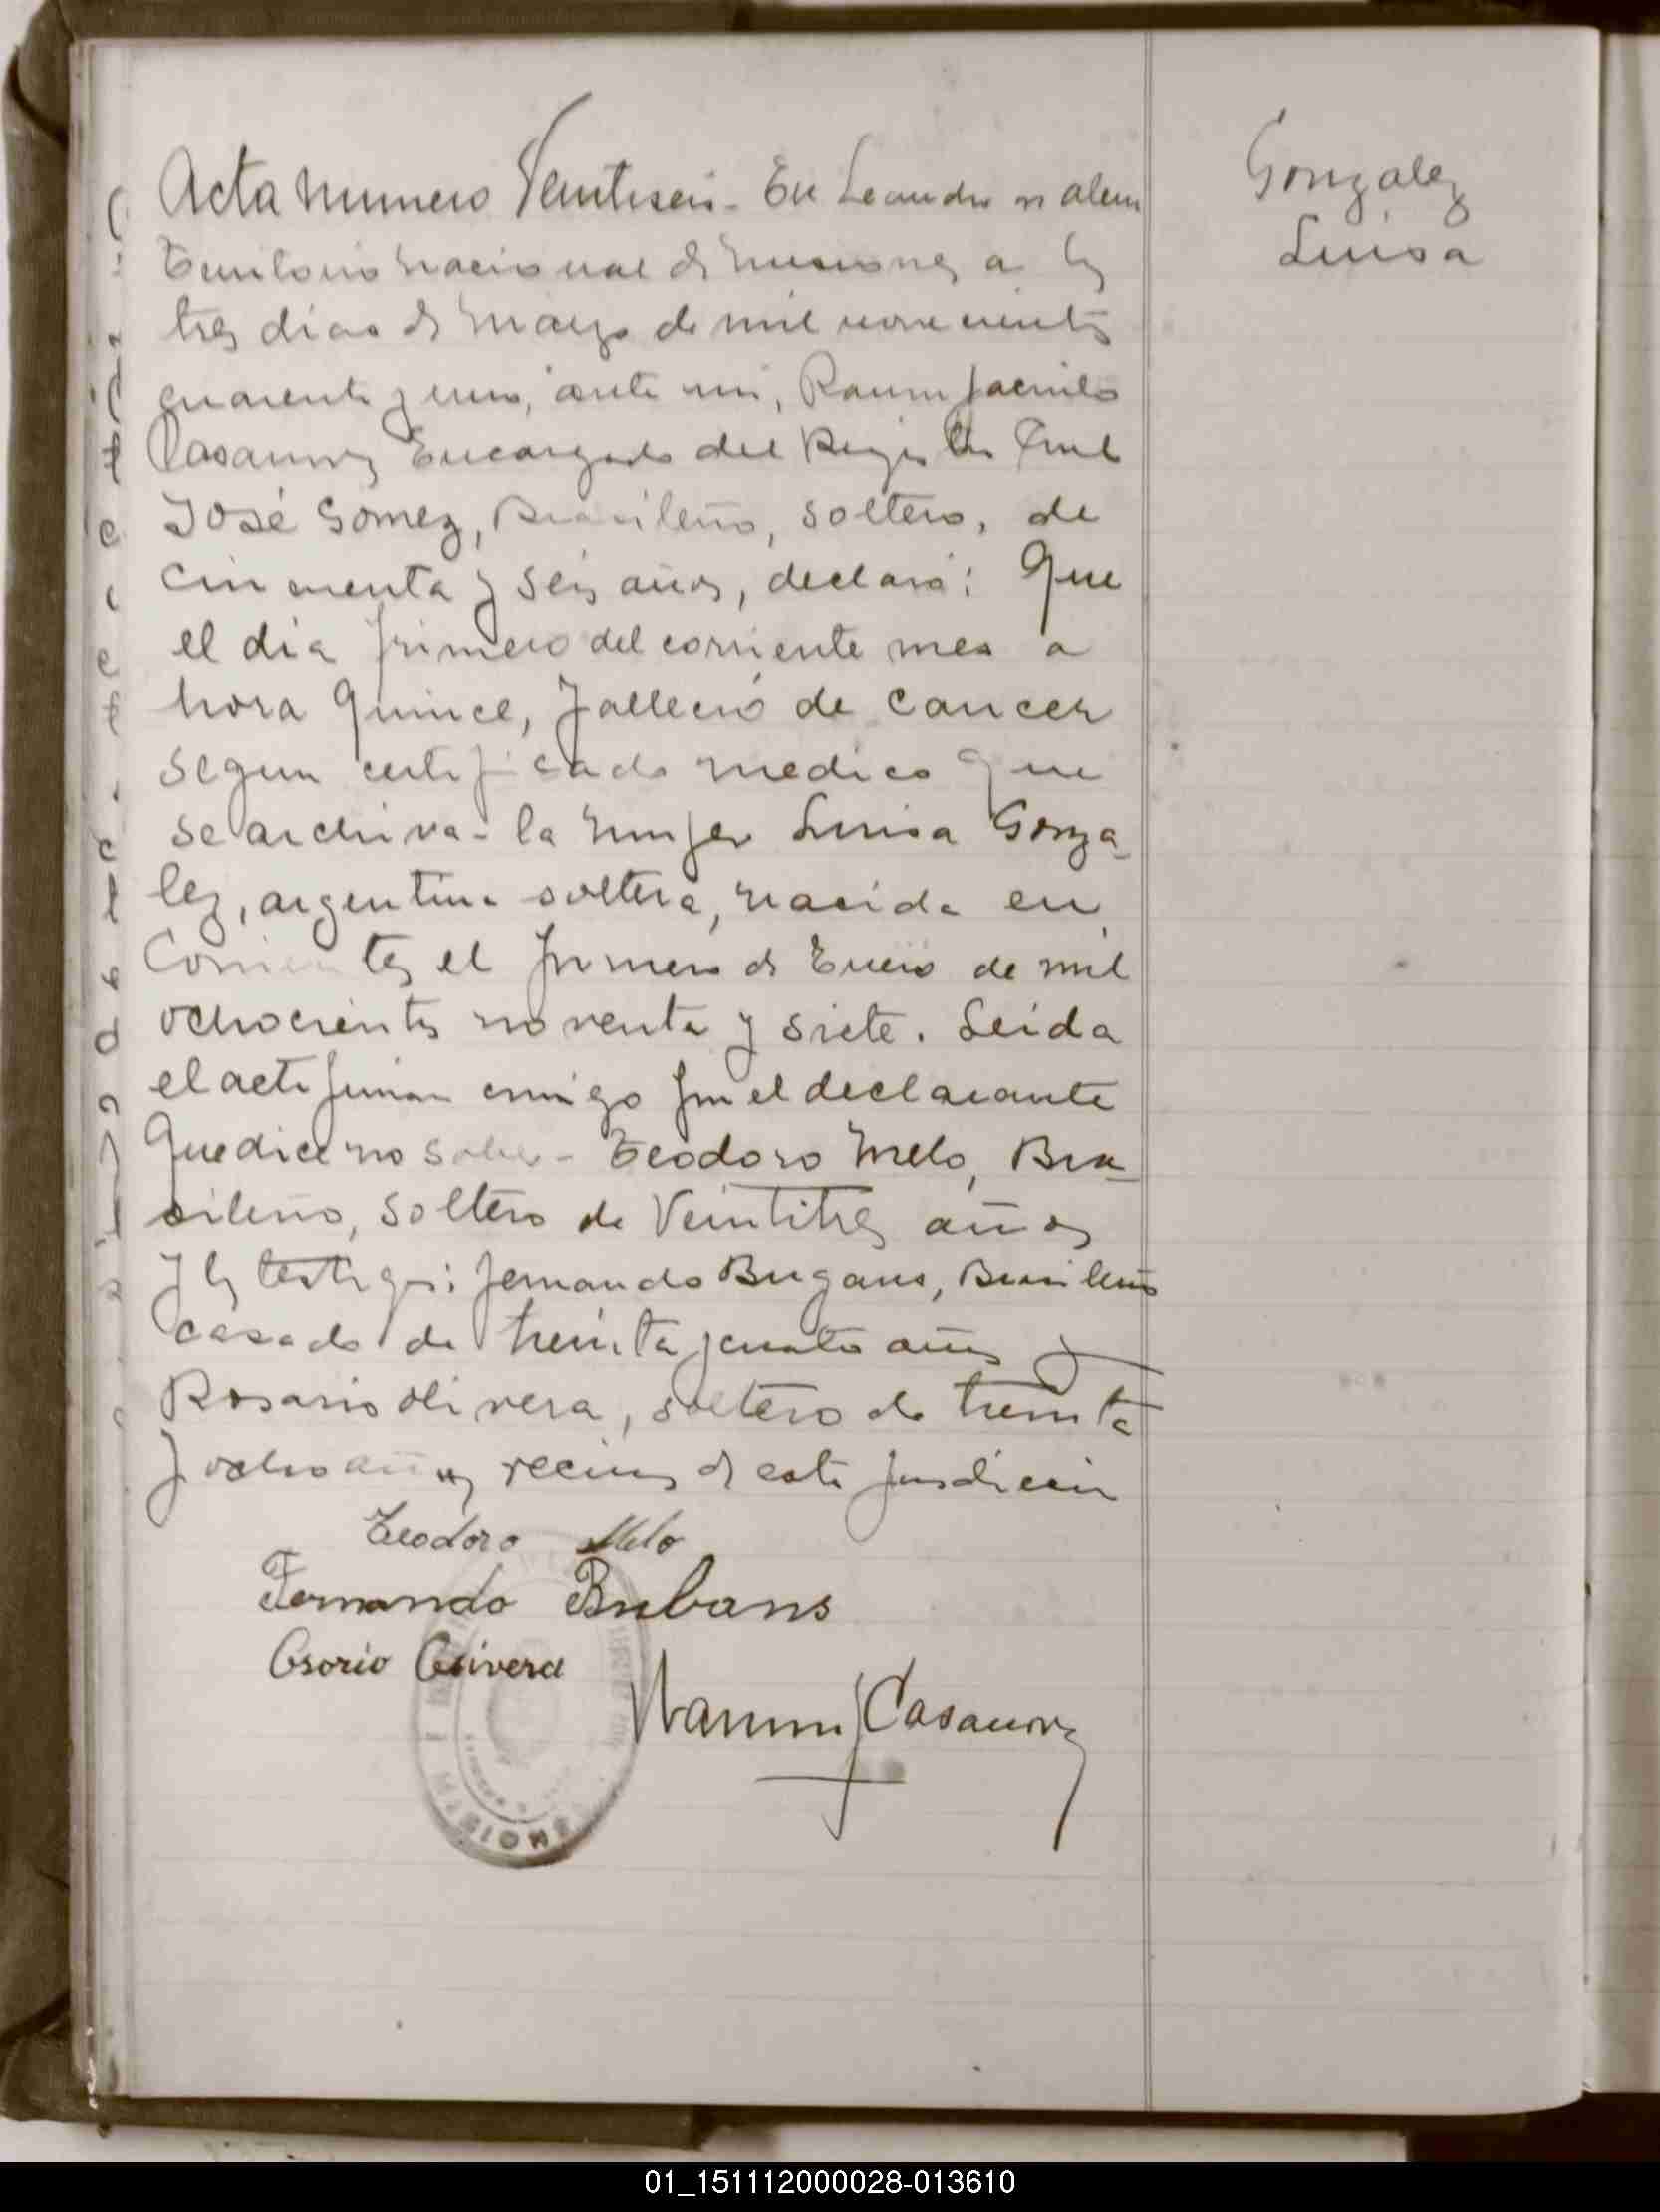 Acta numero Veintiseis - En Leandro N Alem
Territorio nacional de Misiones a los
tres dias de Marzo de mil novecientos
cuarenta y uno, ante mi, Ramon Jacinto
Casanova Encargado del Registro Civil
José Gomez, Brasileño, soltero, de
cincuenta y seis años, declaró: Que
el dia primero del corriente mes a
hora quince, falleció de cancer
segun certificado medico que
se archiva - la mujer Luisa Gonza-
lez, argentina soltera, nacida en
Corrientes el primero de Enero de mil
ochocientos noventa y siete. Leida
el acta firman conmigo por el declarante
que dice no saber - Teodoro Melo, Bra-
sileño, soltero de Veintitres años
y los testigos: Fernando Bugans, Brasileño
casado de treinta y cuatro años y
Rosario Olivera, soltero de treinta
y ocho años vecinos de esta jurisdiccion
Teodoro Melo
Fernando Bubans
Osorio Olivera
Ramon J Casanova
MISIONES
Gonzalez
Luisa
01_151112000028-013610